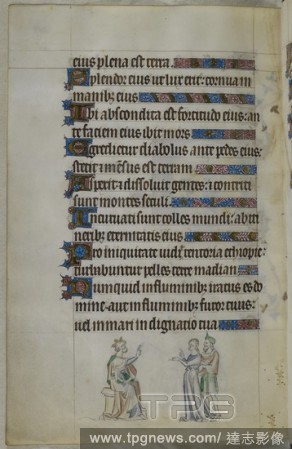 eius plena est terra.
Splendor eius ut lux erit: cornua in
manibz eius
Ibi abscondita est fortitudo eius: an
te faciem eius ibit mors
Egredietur diabolus ante pedes eius:
stetit & mensus est terram
Aspexit & dissoluit gentes: & contriti
sunt montes seculi.
Incuruati sunt colles mundi: ab iti
neribz eternitatis eius
Pro iniquitate uidi tentoria ethiopie:
turbabuntur pelles terre madian
Numquid in fluminibz iratus es do
mine: aut in fluminibz furor tuus:
uel in mari indignatio tua
TPG
www.tpgnews.com / 達志影像